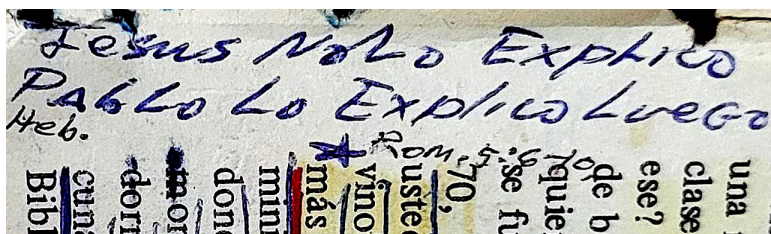 Jesus No Lo Explico
Pablo Lo Explico Luego
Heb.
Rom. 5:6
una
clase
ese?
de b
quie
se fu
70,
usted
vino
más
mini
dond
mor
dorm
cund
Bibl